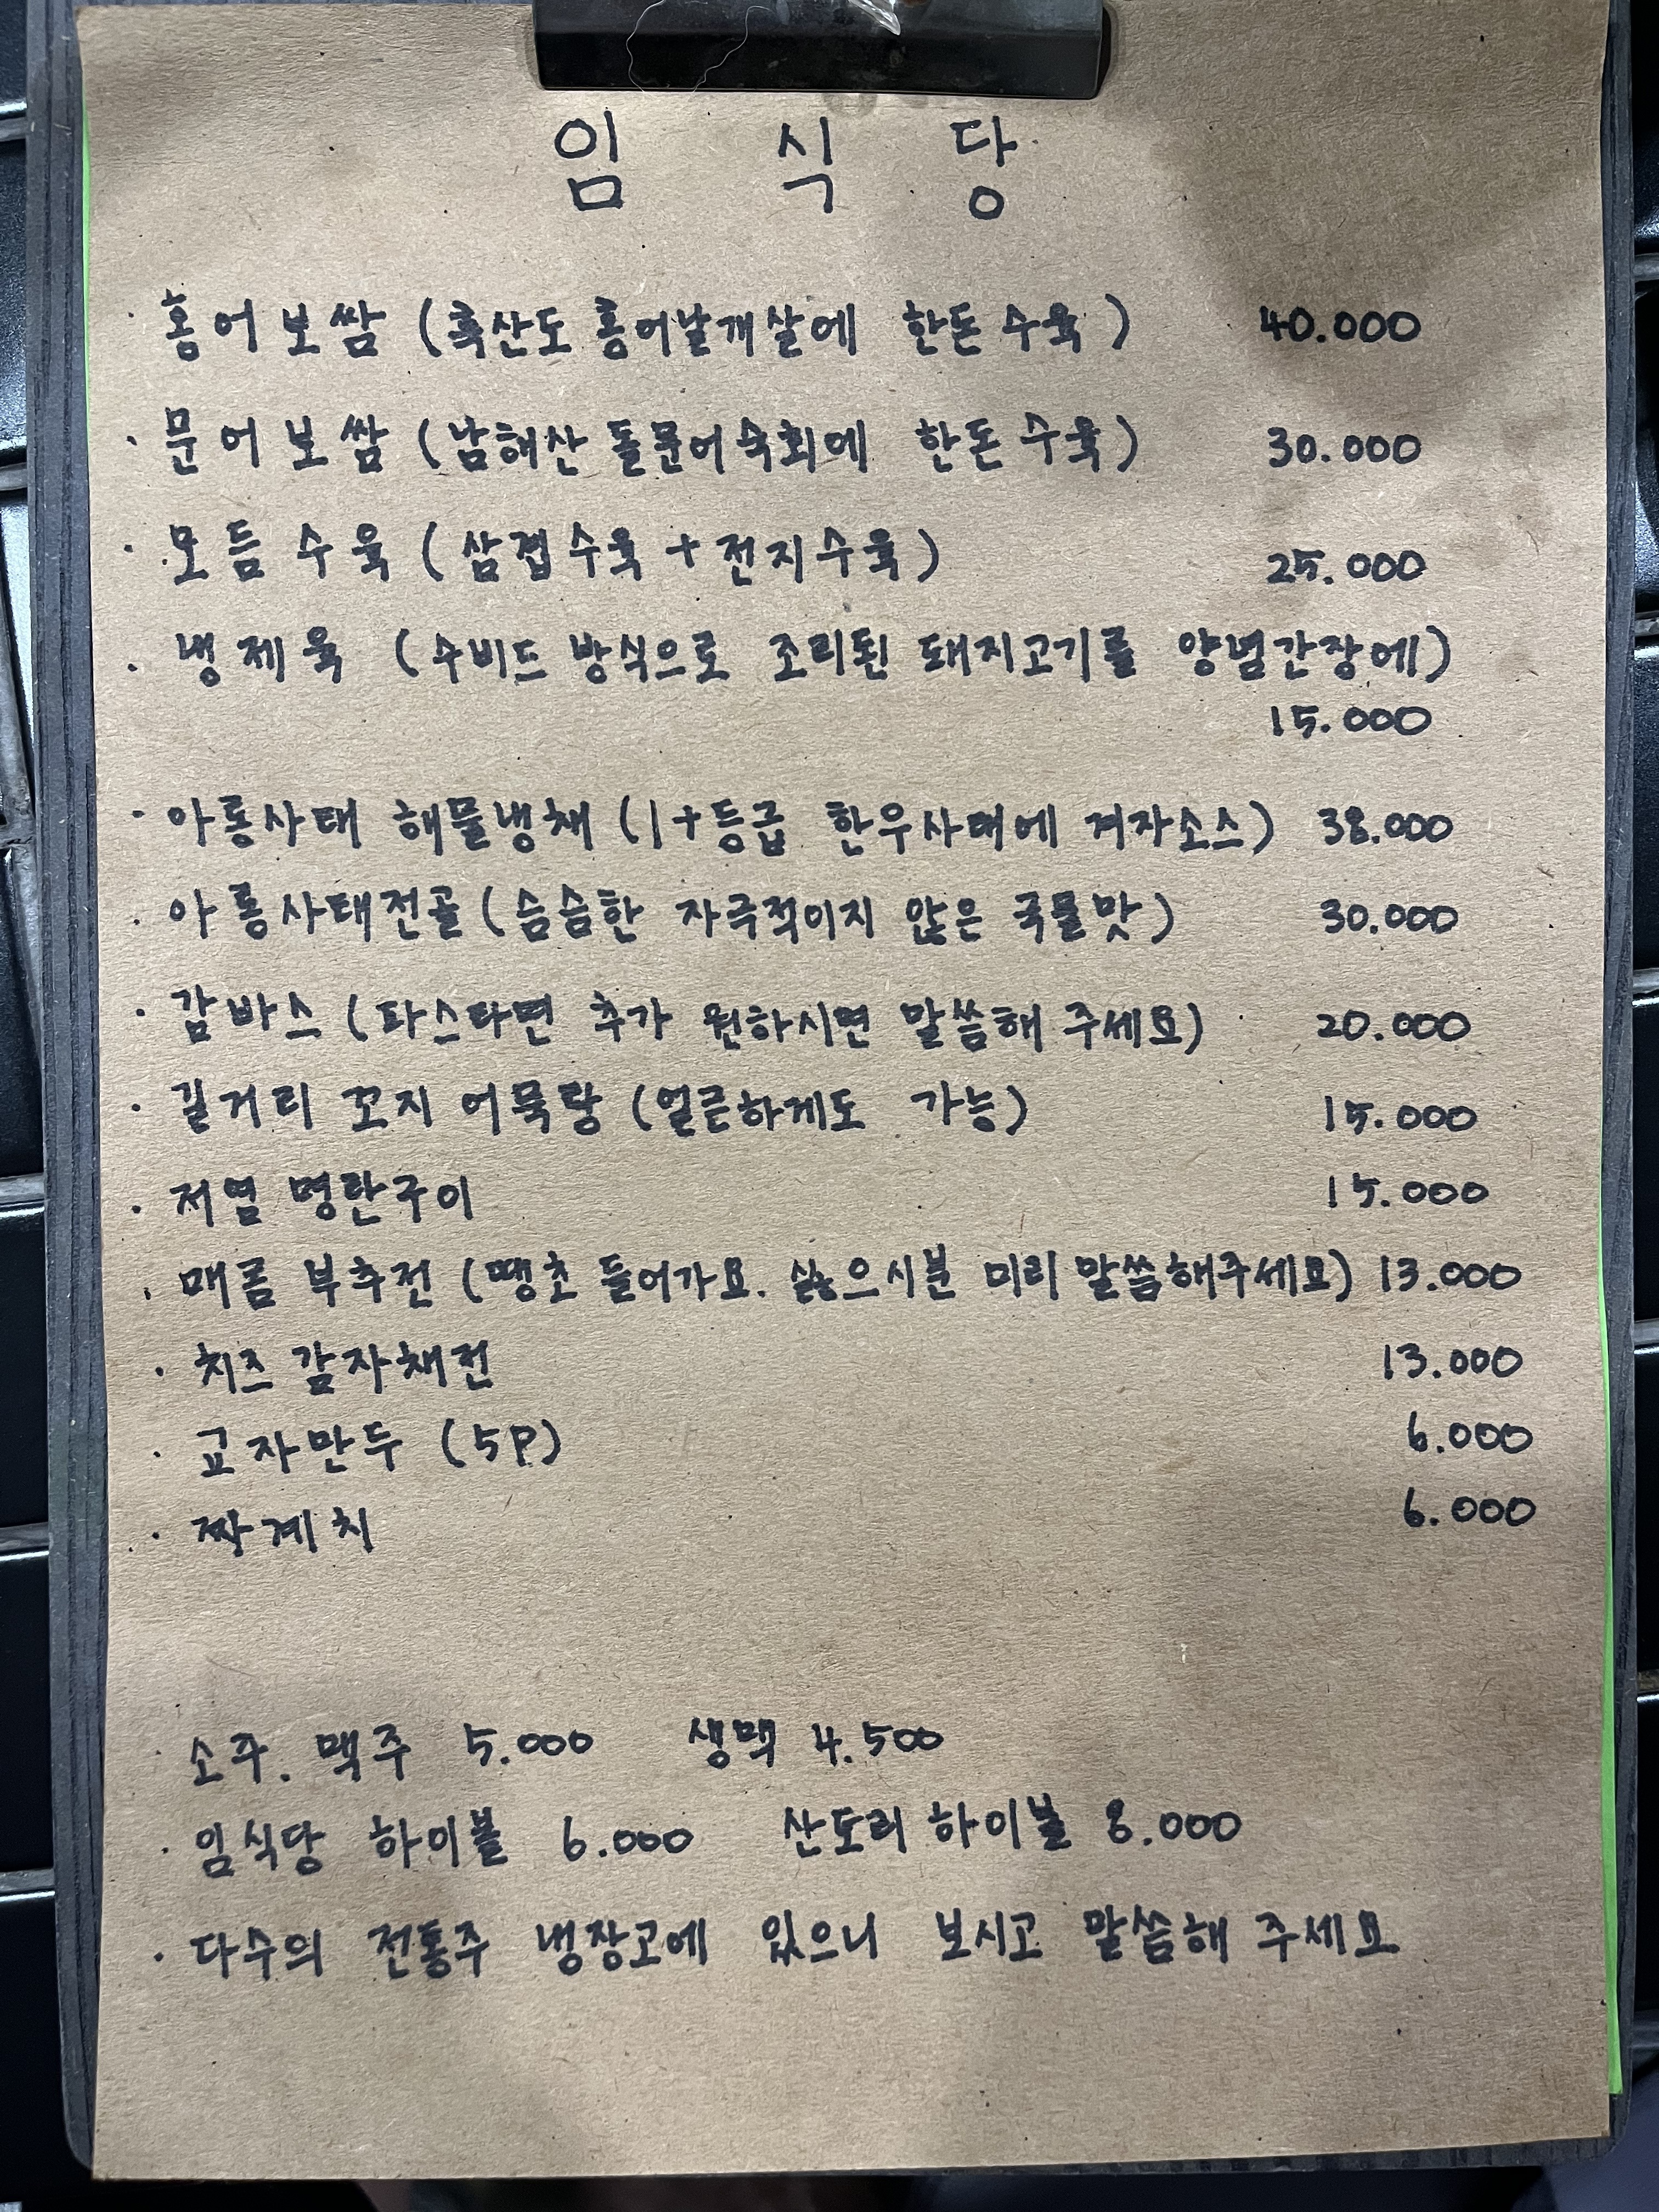 임 식 당
· 홍어보쌈 (흑산도 홍어날개살에 한돈 수육) 40.000
· 문어보쌈 (남해산 돌문어숙회에 한돈 수육) 30.000
· 모듬 수육 (삼겹수육 + 전지수육) 25.000
· 냉제육 (수비드 방식으로 조리된 돼지고기를 양념간장에)
15.000
· 아롱사태 해물냉채 (1+등급 한우사태에 겨자소스) 38.000
· 아롱사태전골 (슴슴한 자극적이지 않은 국물맛) 30.000
· 감바스 (파스타면 추가 원하시면 말씀해 주세요) 20.000
· 길거리 꼬지 어묵탕 (얼큰하게도 가능) 15.000
· 저염 명란구이 15.000
· 매콤 부추전 (땡초 들어가요. 싫으시분 미리 말씀해주세요) 13.000
· 치즈 감자채전 13.000
· 교자만두 (5P) 6.000
· 짜계치 6.000
· 소주. 맥주 5.000 생맥 4.500
· 임식당 하이볼 6.000 산토리 하이볼 8.000
· 다수의 전통주 냉장고에 있으니 보시고 말씀해 주세요